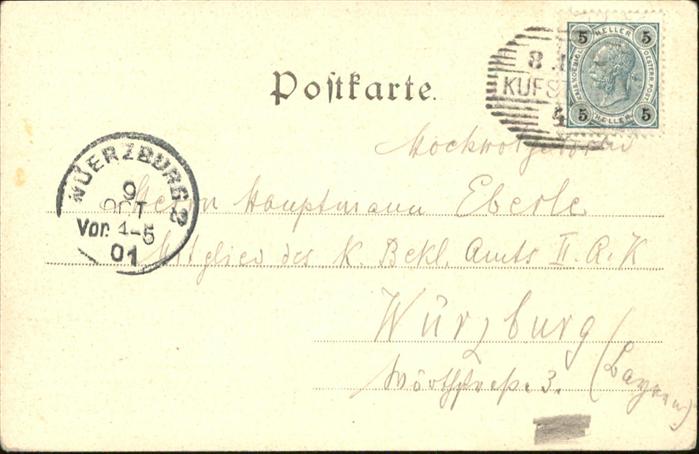 Postkarte.
5 HELLER 5
5 HELLER 5
8
KUFS
WUERZBURG 2
9
OCT
Vor. 4-5
01
Hochwohlgeboren
Herrn Hauptmann Eberle
Mitglied des K. Bekl. Amts II. A. K
Würzburg
Wörthstraße 3. (Bayern)